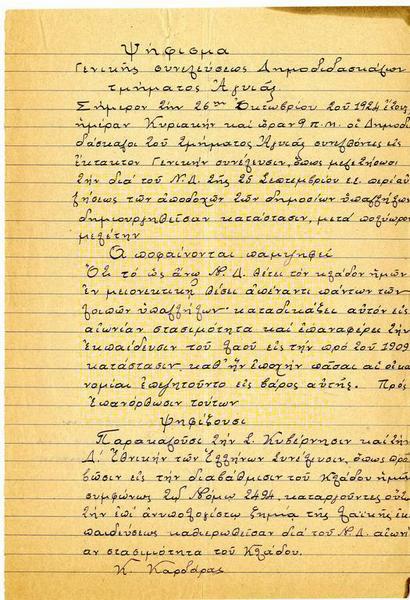 Ψήφισμα
Γενικῆς συνελεύσεως Δημοδιδασκάλων
τμήματος Ἁγυιᾶς.
Σήμερον τὴν 26ην Ὀκτωβρίου τοῦ 1924 ἔτους
ἡμέραν Κυριακὴν καὶ ὥραν 9 π.μ. οἱ Δημοδι
δάσκαλοι τοῦ τμήματος Ἁγυιᾶς συνελθόντες εἰς
ἔκτακτον Γενικὴν συνέλευσιν, ὅπως μελετήσωσι
τὴν διὰ τοῦ Ν.Δ. τῆς 25 Σεπτεμβρίου ε.ε. περὶ αὐ
ξήσεως τῶν ἀποδοχῶν τῶν δημοσίων ὑπαλλήλων
δημιουργηθεῖσαν κατάστασιν, μετὰ πολύωρον
μελέτην
Ἀποφαίνονται παμψηφεὶ
Ὅτι τὸ ὡς ἄνω Ν.Δ. θέτει τὸν κλάδον ἡμῶν
ἐν μειονεκτικῇ θέσει ἀπέναντι πάντων τῶν
λοιπῶν ὑπαλλήλων καταδικάζει αὐτὸν εἰς
αἰωνίαν στασιμότητα καὶ ἐπαναφέρει τὴν
ἐκπαίδευσιν τοῦ λαοῦ εἰς τὴν πρὸ τοῦ 1909
κατάστασιν, καθ' ἣν ἐποχὴν πᾶσαι αἱ οἰκο
νομίαι ἐζητοῦντο εἰς βάρος αὐτῆς. Πρὸς
ἐπανόρθωσιν τούτων
Ψηφίζουσι
Παρακαλοῦσι τὴν Σ. Κυβέρνησιν καὶ τὴν
Δ' Ἐθνικὴν τῶν Ἑλλήνων Συνέλευσιν, ὅπως προ
βῶσιν εἰς τὴν διαβάθμισιν τοῦ Κλάδου ἡμῶν
συμφώνως τῷ Νόμῳ 2494, καταργοῦντες οὕτω
τὴν ἐπὶ ἀνυπολογίστῳ ζημίᾳ τῆς λαϊκῆς ἐκ
παιδεύσεως καθιερωθεῖσαν διὰ τοῦ Ν.Δ. αἰωνί
αν στασιμότητα τοῦ Κλάδου.
Κ. Καρδάρας